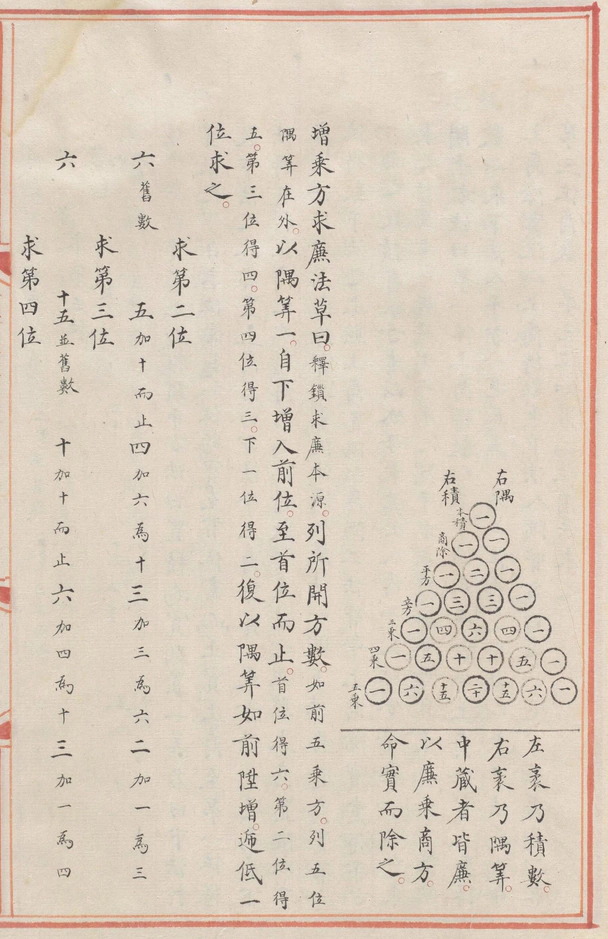 右隅
右積
本積 一
商除 一 一
平方 一 二 一
立方 一 三 三 一
三乘 一 四 六 四 一
四乘 一 五 十 十 五 一
五乘 一 六 十五 二十 十五 六 一
左袤乃積數。
右袤乃隅筭。
中藏者皆廉。
以廉乘商方。
命實而除之。
增乘方求廉法草曰。釋鎖求廉本源。列所開方數。如前五乘方。列五位
隅筭在外。以隅筭一。自下增入前位。至首位而止。首位得六。第二位得
五。第三位得四。第四位得三。下一位得二。復以隅筭如前陞增。遞低一
位求之。
求第二位
六舊數 五加十而止 四加六為十 三加三為六 二加一為三
求第三位
六 十五並舊數 十加十而止 六加四為十 三加一為四
求第四位